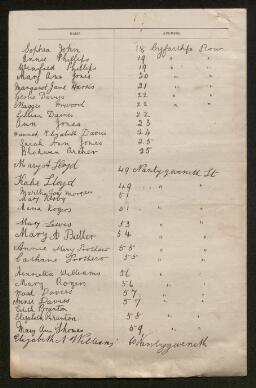 NAME. ADDRESS.
Sophia John 18 Cyfarthfa Row
Annie Phillips 19 " "
Winifred Phillips 19 " "
Mary Ann Jones 20 " "
Margaret Jane Harris 21 " "
Gertie Davies 22 " "
Maggie 22 " "
Lillian Davies 22
Ann Jones 23
Hannah Elizabeth Davies 24
Sarah Ann Jones 25
Archer 25
Mary A Lloyd 49 Nantygwenith St
Katie Lloyd 49 " "
Martha Jane Morgan 51 " "
Mary
Rogers 51 " "
Mary Lewis 53 " "
Mary A Butler 54 " "
Annie Mary Prothero 55 "
Cathrine Prothero 55 "
Henrietta Williams 56 "
Mary Rogers 56 "
Maud Davies 57 "
Annie Davies 57 "
Edith
Elizabeth 58 " "
Mary Ann Thomas 59 "
Elizabeth A Williams 60 Nantygwenith